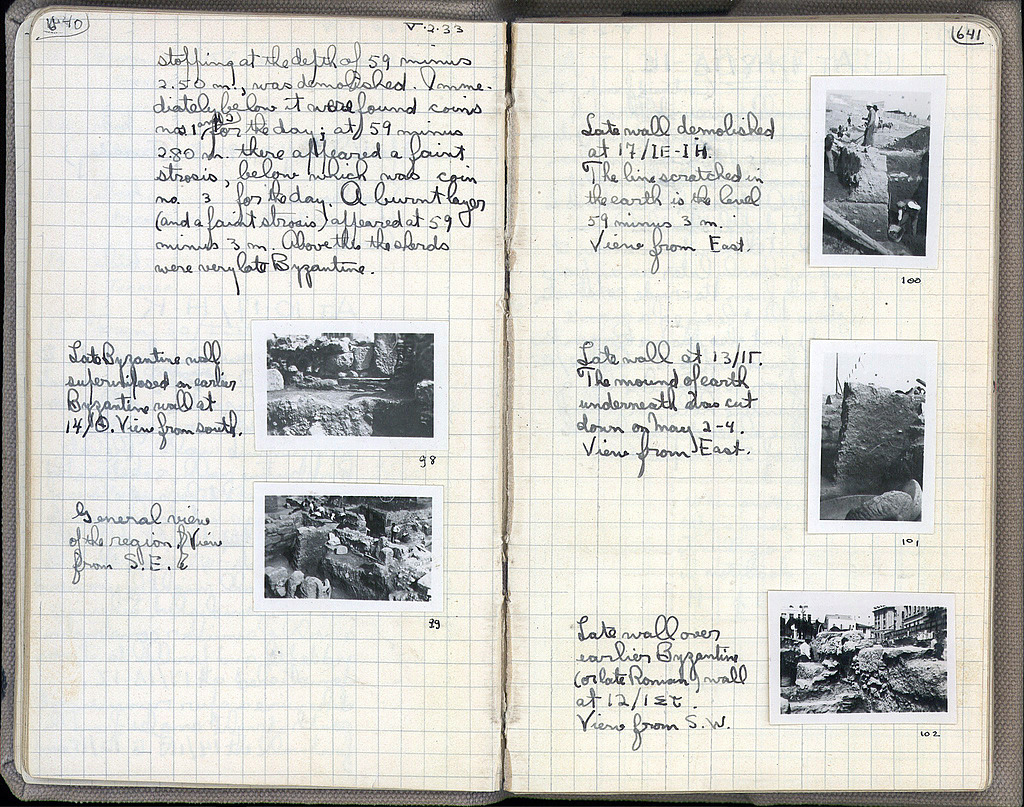 640
V·2·33
stopping at the depth of 59 minus
2.50 m., was demolished. Imme-
diately below it were found coins
nos 1 and 2 for the day; at 59 minus
2.80 m. there appeared a faint
strosis, below which was coin
no. 3 for the day. A burnt layer
(and a faint strosis) appeared at 59
minus 3 m. Above this the sherds
were very late Byzantine.
Late Byzantine wall
superimposed on earlier
Byzantine wall at
14/Θ. View from south.
98
General view
of the region. View
from S.E.
99
641
Late wall demolished
at 17/ΙΕ-ΙΗ.
The line scratched in
the earth is the level
59 minus 3 m.
View from East.
100
Late wall at 13/ΙΓ.
The mound of earth
underneath was cut
down on May 2-4.
View from East.
101
Late wall over
earlier Byzantine
(or late Roman) wall
at 12/
View from S.W.
102